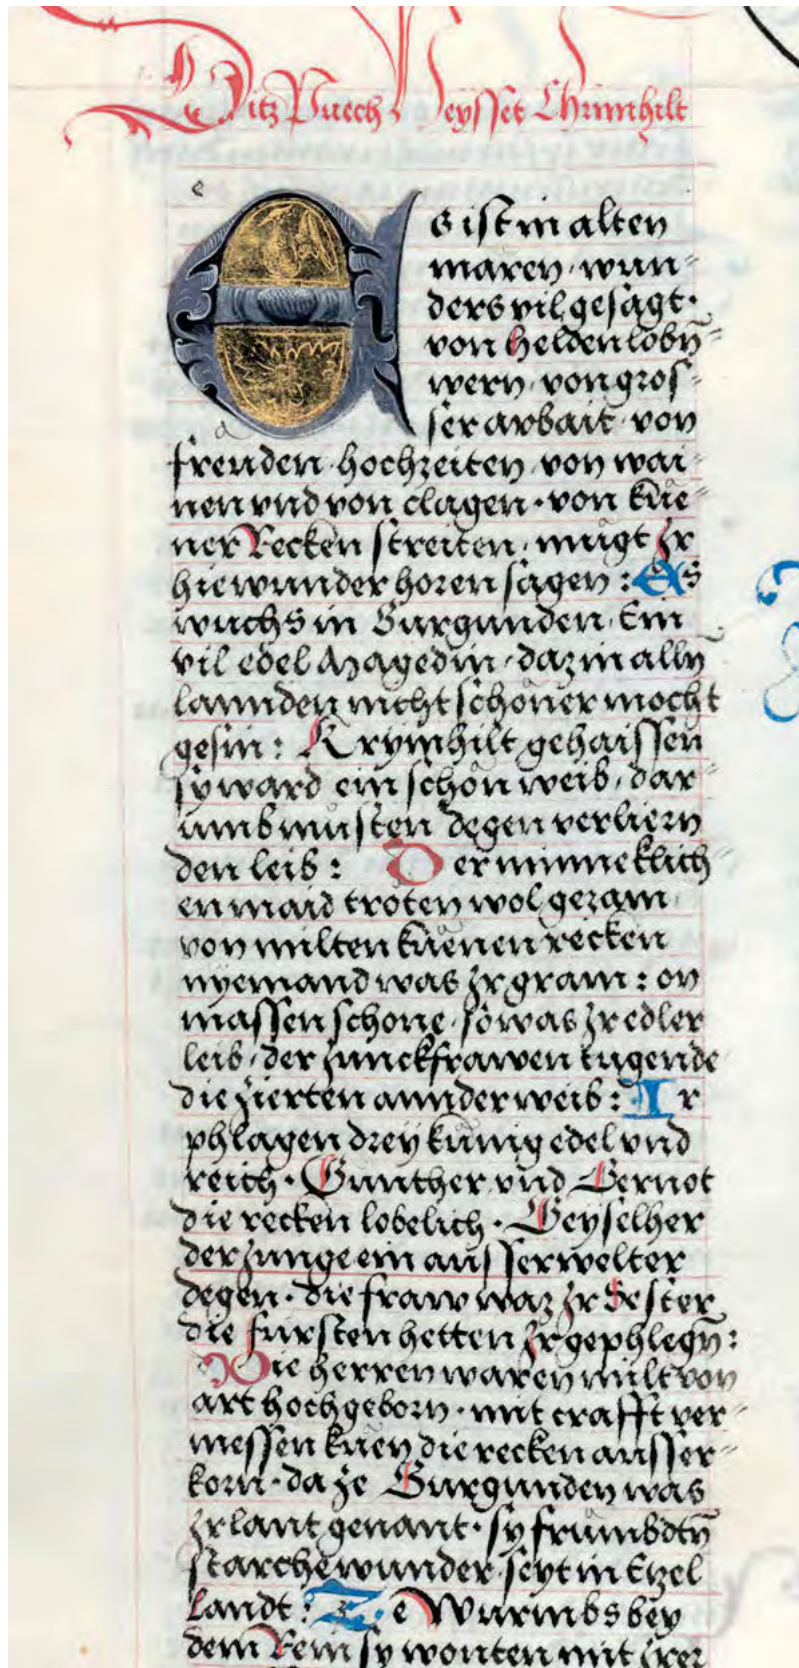 Ditz Puech Heysset Chrimhilt
Es ist in alten
maren, wun⸗
ders vil gesagt·
von Helden lobn̄⸗
wern, von gros⸗
ser arbait, von
freuden, hochzeiten, von wai⸗
nen vnd von clagen· von kue⸗
ner Recken streiten, mugt Ir
hie wunder horen sagen: Es
wuchs in Burgunden, Ein
vil edel Magedin, daz in alln̄
lannden nicht schoner mocht
gesin: Krymhilt gehaissen
sy ward ein schön weib, dar⸗
umb musten degen verliern
den leib: Der minneklich⸗
en maid troten wol gezam,
von milten kuenen recken
nyemand was Ir gram: on
massen schone, so was Ir edler
leib, der Junckfrawen tugende
die zierten annder weib: Ir
phlagen drey kunig edel vnd
reich· Gunther, vnd Gernot
die recken lobelich· Geyselher
der Junge ein ausserwelter
degen· die fraw waz Ir Sester
die fursten hetten Ir gephlegn̄:
Die herren waren milt von
art hoch geborn· mit crafft ver⸗
messen kuen die recken ausser⸗
korn· da ze Burgunden was
Ir lant genant· sy frumbdtn̄
starche wunder, seyt in Etzel
Landt: Ze Wurmbs bey
dem Rein sy wonten mit Irer